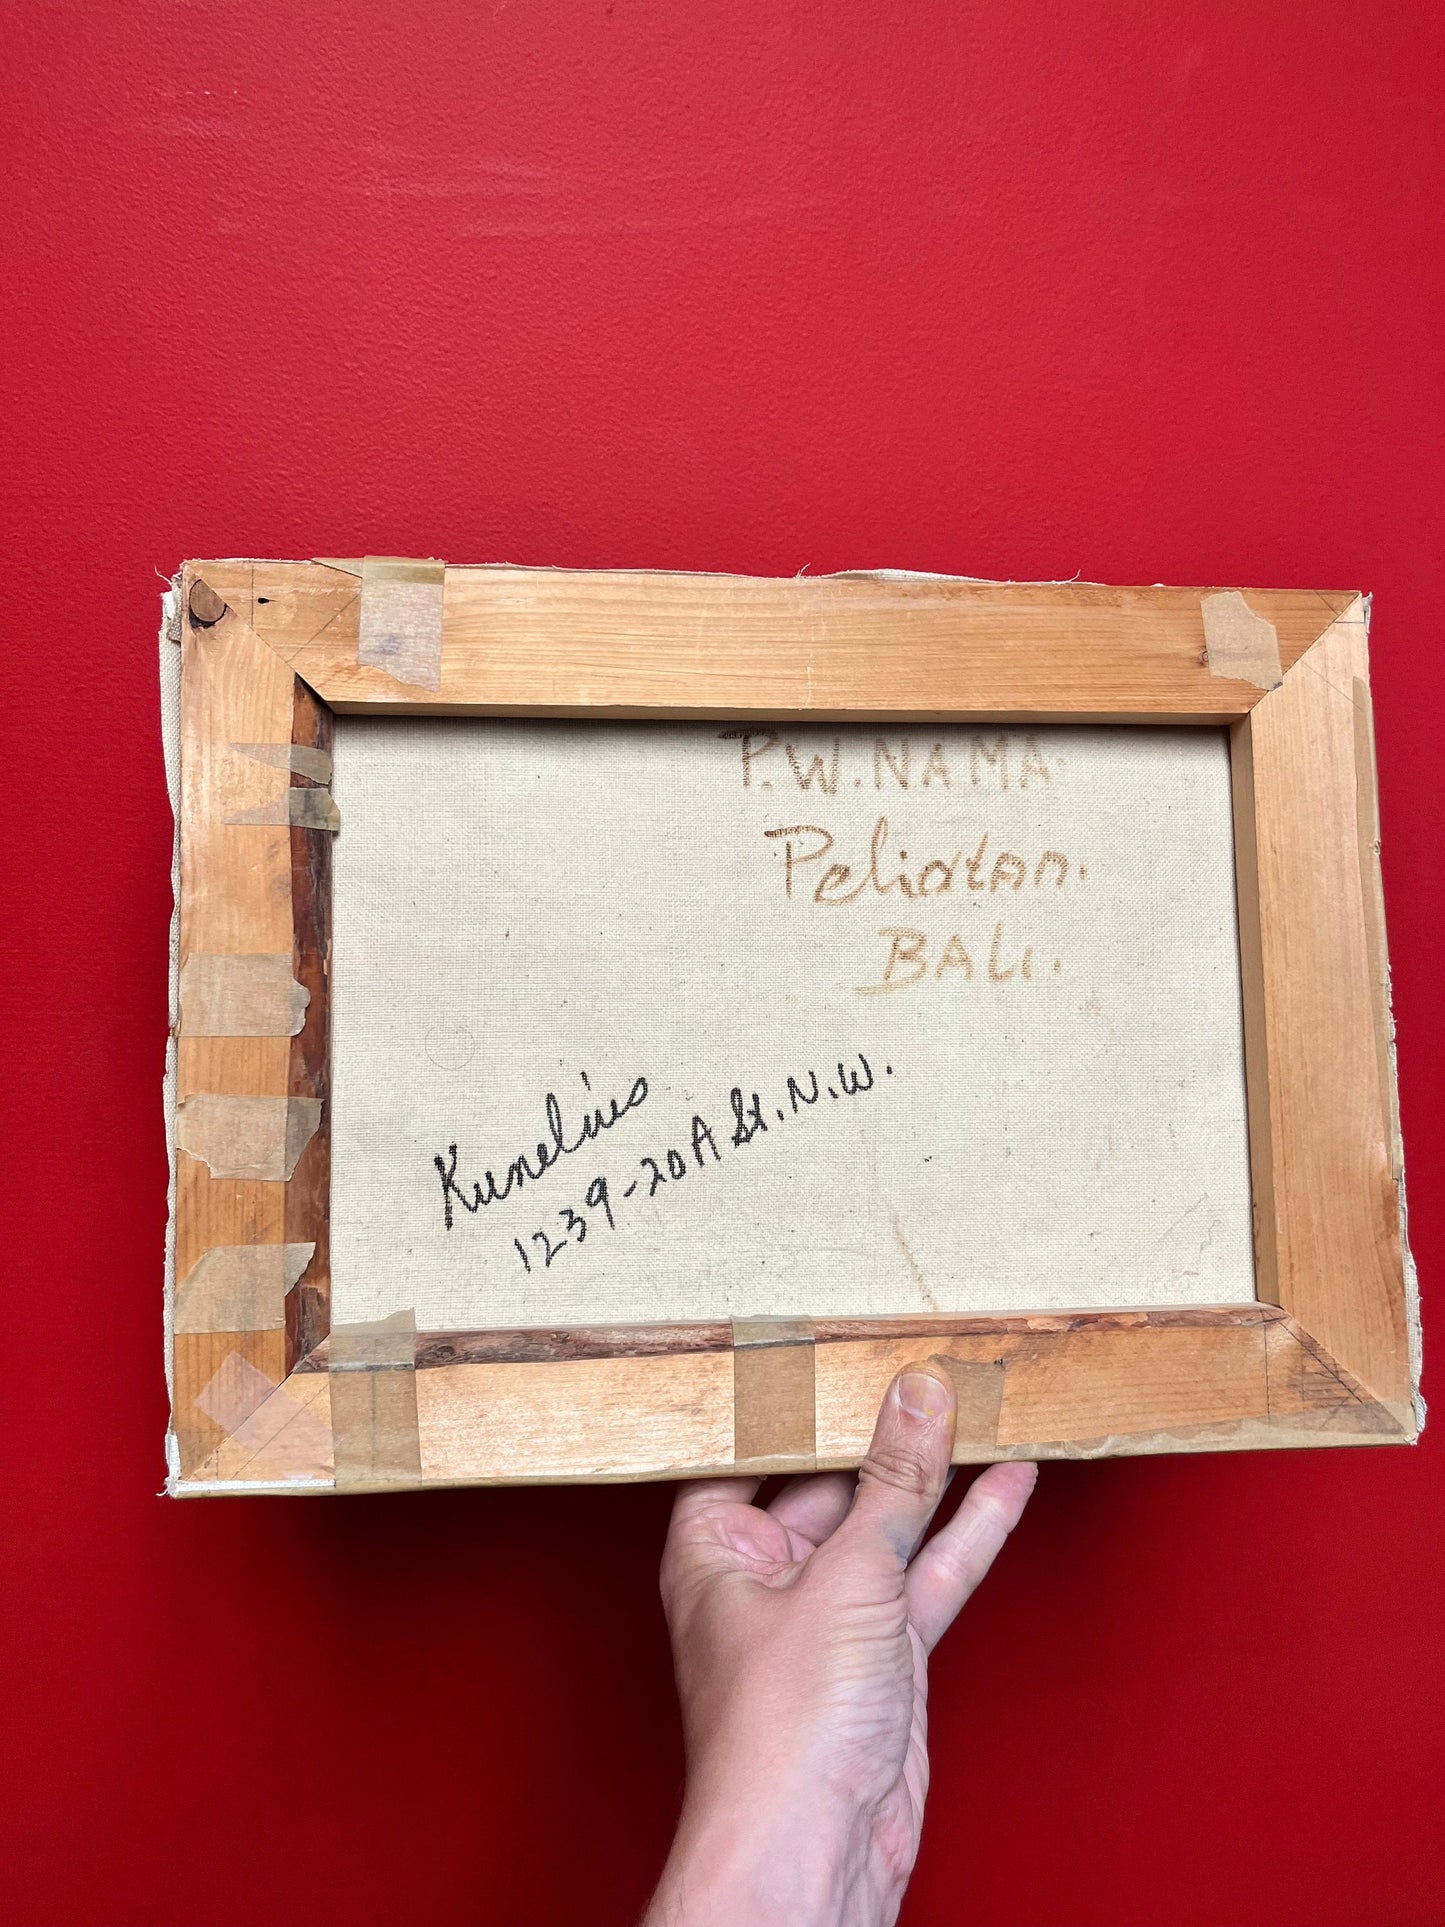 P.W.NAMA.
Peliatan.
BALI.
Kunelius
1239-20A St. N.W.